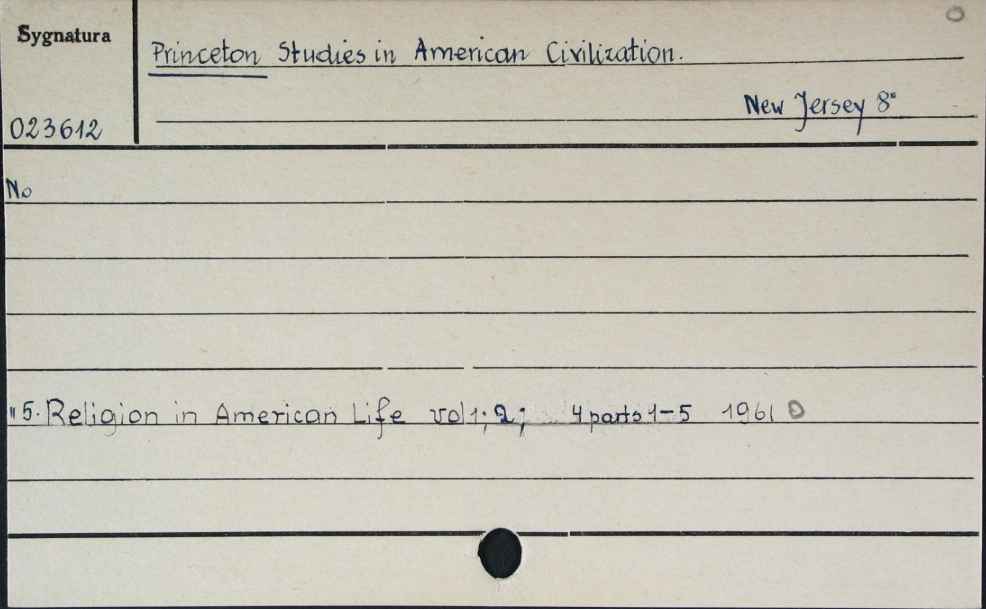 Sygnatura
Princeton Studies in American Civilization.
New Jersey 8°
023612
No
"5. Religion in American Life vol 1; 2; 4 parts 1-5 1961